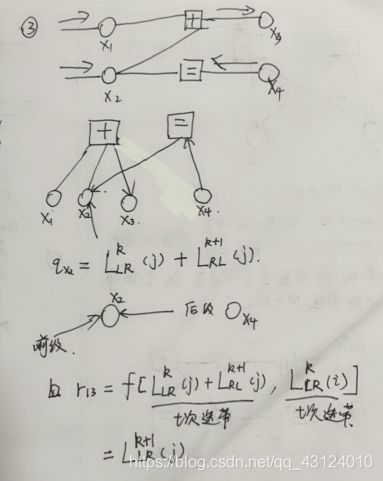 ③
x₁ + x₃
x₂ = x₄
+ =
x₁ x₂ x₃ x₄
q_{x₂} = L_{LR}^{k}(j) + L_{RL}^{k+1}(j).
x₂
前级. 后级 x₄
且 r₁₃ = f[L_{LR}^{k}(j) + L_{RL}^{k+1}(j), L_{LR}^{k}(i)]
t次迭代 t次迭代
= L_{LR}^{k+1}(j)
https://blog.csdn.net/qq_43124010